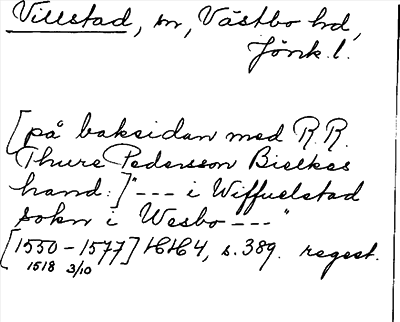 Villstad, sn, Västbo hd,
Jönk. l.
[på baksidan med R. R.
Thure Pedersson Bielkes
hand:] "--- i Wiffuelstad
sokn i Wesbo ---"
[1550-1577] HH 4, s. 389. regest.
1518 3/10